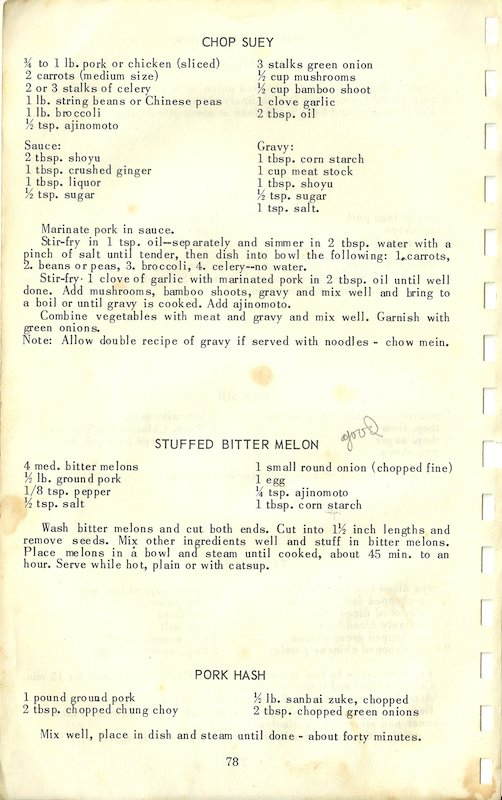 CHOP SUEY
¾ to 1 lb. pork or chicken (sliced)
2 carrots (medium size)
2 or 3 stalks of celery
1 lb. string beans or Chinese peas
1 lb. broccoli
½ tsp. ajinomoto
3 stalks green onion
½ cup mushrooms
½ cup bamboo shoot
1 clove garlic
2 tbsp. oil
Sauce:
2 tbsp. shoyu
1 tbsp. crushed ginger
1 tbsp. liquor
½ tsp. sugar
Gravy:
1 tbsp. corn starch
1 cup meat stock
1 tbsp. shoyu
½ tsp. sugar
1 tsp. salt.
Marinate pork in sauce.
Stir-fry in 1 tsp. oil--separately and simmer in 2 tbsp. water with a
pinch of salt until tender, then dish into bowl the following: 1. carrots,
2. beans or peas, 3. broccoli, 4. celery--no water.
Stir-fry 1 clove of garlic with marinated pork in 2 tbsp. oil until well
done. Add mushrooms, bamboo shoots, gravy and mix well and bring to
a boil or until gravy is cooked. Add ajinomoto.
Combine vegetables with meat and gravy and mix well. Garnish with
green onions.
Note: Allow double recipe of gravy if served with noodles - chow mein.
STUFFED BITTER MELON
Good
4 med. bitter melons
½ lb. ground pork
1/8 tsp. pepper
½ tsp. salt
1 small round onion (chopped fine)
1 egg
¼ tsp. ajinomoto
1 tbsp. corn starch
Wash bitter melons and cut both ends. Cut into 1½ inch lengths and
remove seeds. Mix other ingredients well and stuff in bitter melons.
Place melons in a bowl and steam until cooked, about 45 min. to an
hour. Serve while hot, plain or with catsup.
PORK HASH
1 pound ground pork
2 tbsp. chopped chung choy
½ lb. sanbai zuke, chopped
2 tbsp. chopped green onions
Mix well, place in dish and steam until done - about forty minutes.
78